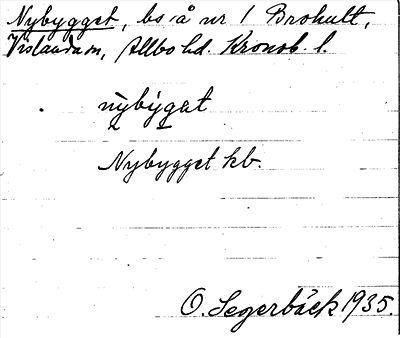 Nybygget, bs å nr 1 Brohult,
Vislandam, Allbo hd. Kronob. l.
nỳby̆gat
Nybygget kb.
O. Segerbäck 1935.